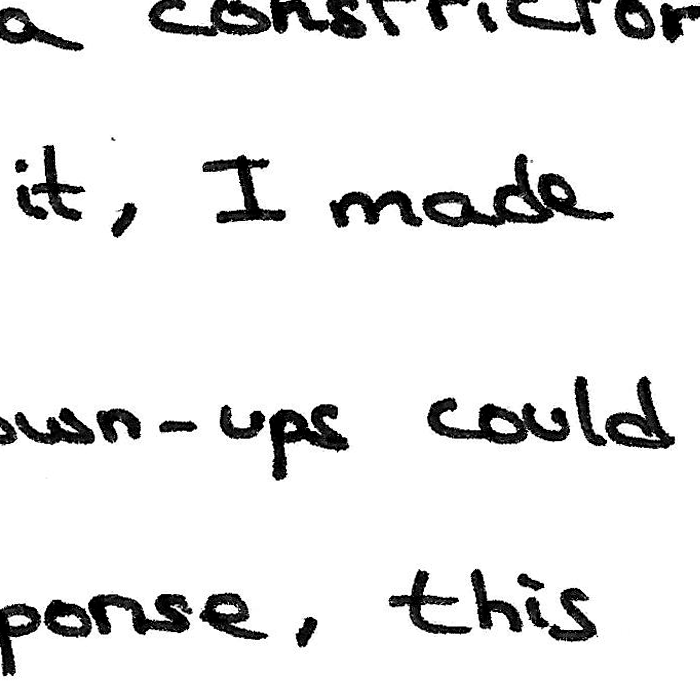 a constrictor
it, I made
own-ups could
ponse, this